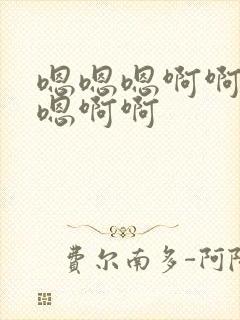 嗯嗯嗯啊啊
嗯啊啊
费尔南多-阿